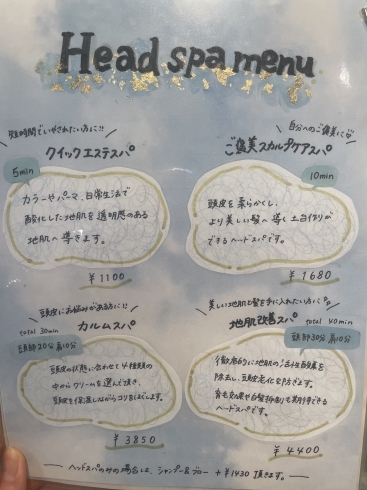 Head spa menu
短時間でいやされたい方に!!
クイックエステスパ
5min
カラーやパーマ、日常生活で
酸化した地肌を透明感のある
地肌へ導きます。
¥1100
自分へのご褒美に
ご褒美スカルプケアスパ
10min
頭皮を柔らかくし、
より美しい髪へ導く土台作りが
できるヘッドスパです。
¥1680
頭皮にお悩みがある方に!!
カルムスパ
total 30min
頭部20分 肩10分
頭皮の状態に合わせて4種類の
中からクリームを選んで頂き、
頭皮を保湿しながらコリをほぐします。
¥3850
美しい地肌と髪を手に入れたい方に
地肌改善スパ
total 40min
頭部30分 肩10分
徹底的に地肌の活性酸素を
除去し、頭皮老化を防ぎます。
育毛効果や白髪抑制も期待できる
ヘッドスパです。
¥4400
ヘッドスパのみの場合は、シャンプー&ブロー +¥1430 頂きます。